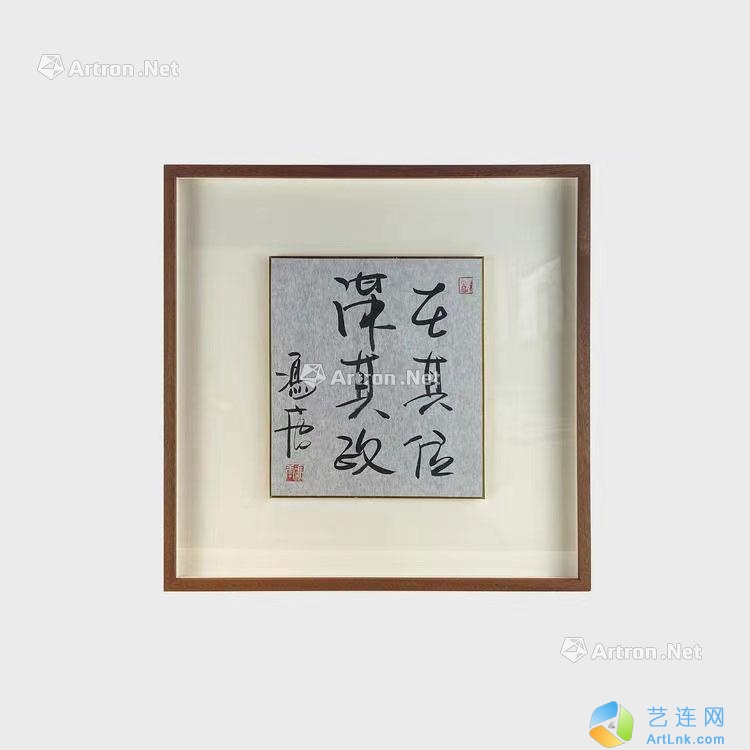 Artron.Net
在其位
谋其政
馮唐
Artron.Net
Artron.Net
艺连网
ArtLnk.com